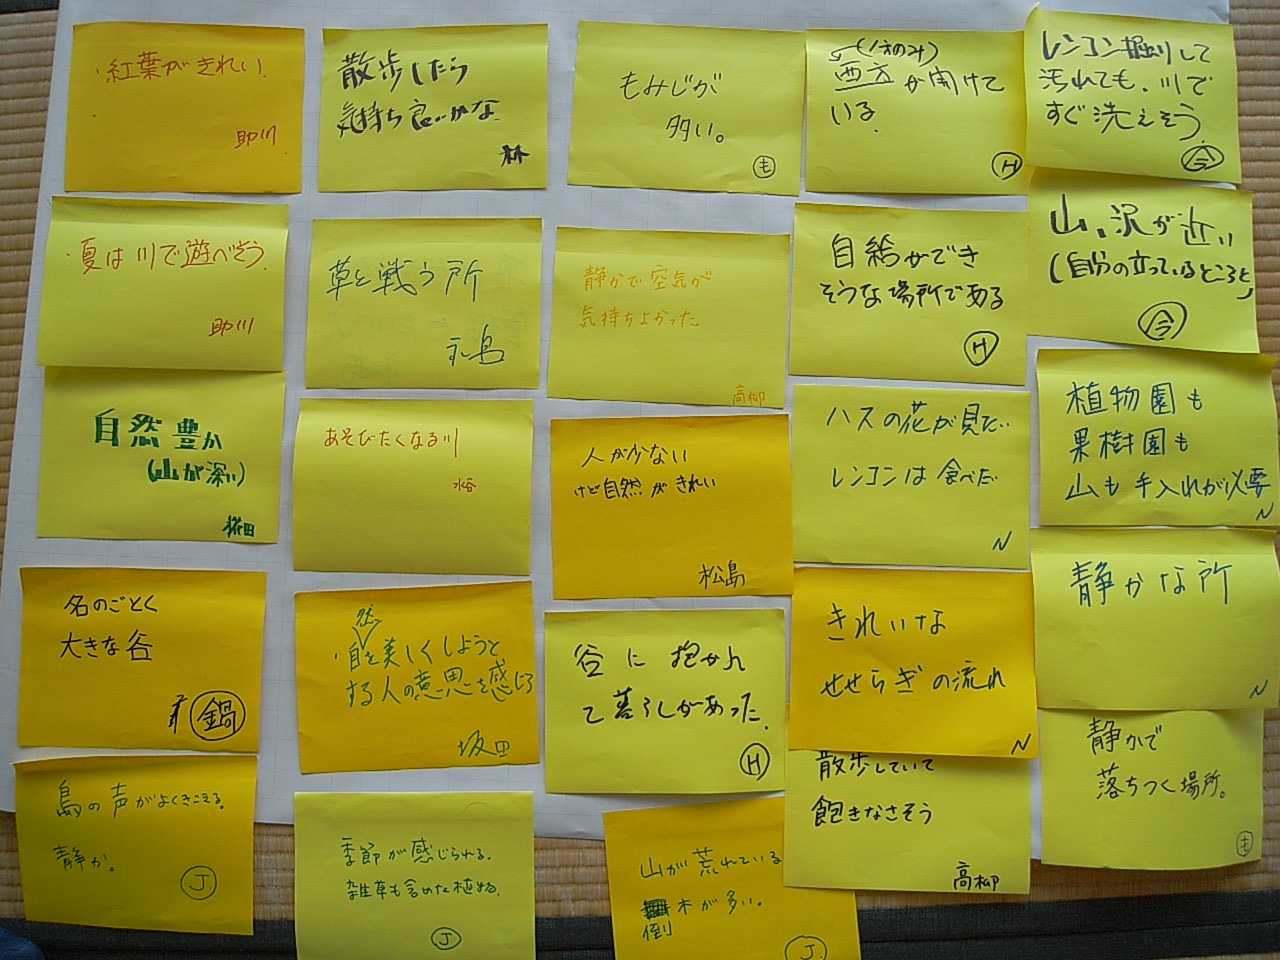 ・紅葉がきれい
助川
散歩したら
気持ち良いかな
林
もみじが
多い。
も
(1方のみ)
西方が開けて
いる
H
レンコン掘りして
汚れても、川で
すぐ洗えそう
今
・夏は川で遊べそう
助川
草と戦う所
静かで空気が
気持ちよかった
高柳
自給ができ
そうな場所である
H
山、沢が近い
(自分の立っているところと)
今
自然豊か
(山が深い)
あそびたくなる川
水谷
人が少ない
けど自然がきれい
松島
ハスの花が見たい
レンコンは食べたい
N
植物園も
果樹園も
山も手入れが必要
N
名のごとく
大きな谷
鍋
・自然を美しくしようと
する人の意思を感じる
坂田
谷に抱かれ
て暮らしがあった
H
きれいな
せせらぎの流れ
N
静かな所
N
鳥の声がよくきこえる。
静か。
J
季節が感じられる。
雑草も含めた植物。
J
山が荒れている
倒木が多い。
J
散歩していて
飽きなさそう
高柳
静かで
落ちつく場所。
も